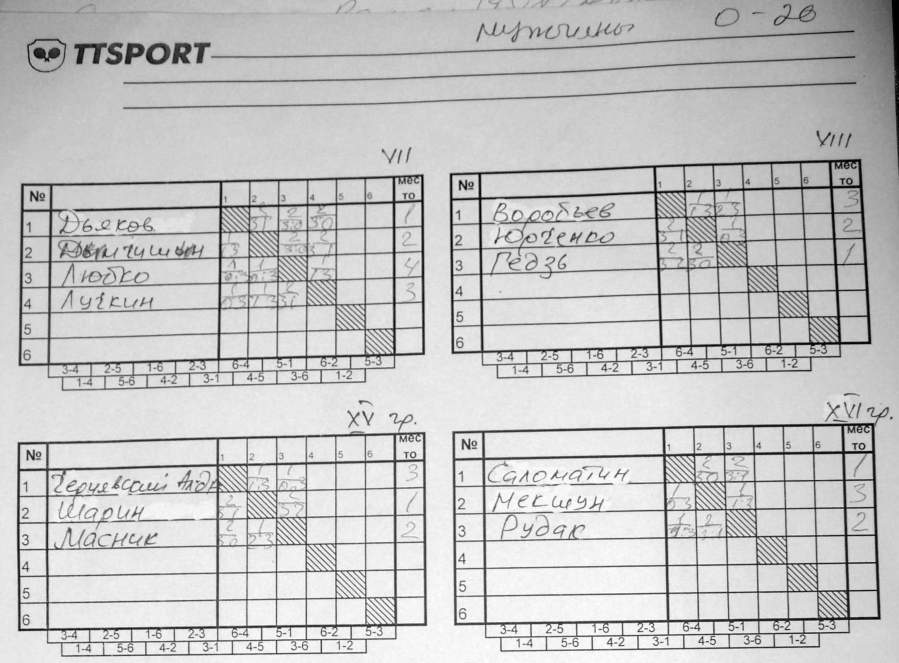 Мужчины 0-26
TTSPORT
VII
№ 1 2 3 4 5 6 место
1 Дьяков 31 30 30 1
2 13 30 31 2
3 Любко 03 03 13 4
4 Лучкин 03 13 31 3
5
6
3-4 2-5 1-6 2-3 6-4 5-1 6-2 5-3
1-4 5-6 4-2 3-1 4-5 3-6 1-2
VIII
№ 1 2 3 4 5 6 место
1 Воробьев 1 13 1 23 3
2 Юрченко 2 31 1 03 2
3 Гедзь 2 32 2 30 1
4
5
6
3-4 2-5 1-6 2-3 6-4 5-1 6-2 5-3
1-4 5-6 4-2 3-1 4-5 3-6 1-2
XV гр.
№ 1 2 3 4 5 6 место
1 Чернявский 1 13 1 0-3 3
2 Шарин 2 31 2 32 1
3 Масник 2 30 1 23 2
4
5
6
3-4 2-5 1-6 2-3 6-4 5-1 6-2 5-3
1-4 5-6 4-2 3-1 4-5 3-6 1-2
XVI гр.
№ 1 2 3 4 5 6 место
1 Саломатин 2 30 2 1
2 Мекшун 1 03 1 13 3
3 Рудак 1 2 31 2
4
5
6
3-4 2-5 1-6 2-3 6-4 5-1 6-2 5-3
1-4 5-6 4-2 3-1 4-5 3-6 1-2